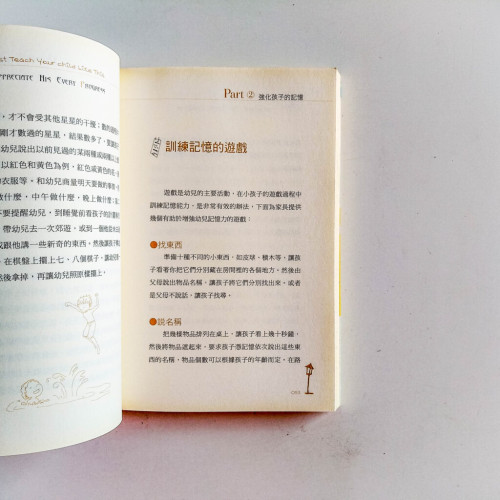 st Teach Your child Like This
ppreciate His Every Progress
，才不會受其他星星的干擾；數的
剛才數過的星星，結果數多了，要讓
幼兒說出以前見過的某兩種或同種
以紅色和黃色為例，紅色的花、
衣服等。和幼兒商量明天要做的事情，
什麼，中午做什麼，晚上做什麼；
不要提醒幼兒，到睡覺前看孩子的計
帶幼兒去一次郊遊，或到一個他從
或跟他講一些新奇的東西，然後讓孩子
在棋盤上擺上七、八個棋子，讓幼兒
然後拿掉，再讓幼兒照原樣擺上。
Part ② 強化孩子的記憶
訓練記憶的遊戲
遊戲是幼兒的主要活動，在小孩子的遊戲過程中
訓練記憶能力，是非常有效的辦法，下面為家長提供
幾個有助於增強幼兒記憶力的遊戲：
●找東西
準備十種不同的小東西，如皮球、積木等，讓孩
子看著你把它們分別藏在房間裡的各個地方，然後由
父母說出物品名稱，讓孩子將它們分別找出來。或者
是父母不說話，讓孩子找尋。
●說名稱
把幾樣物品排列在桌上，讓孩子看上幾十秒鐘，
然後將物品遮起來，要求孩子憑記憶依次說出這些東
西的名稱，物品個數可以根據孩子的年齡而定。在路